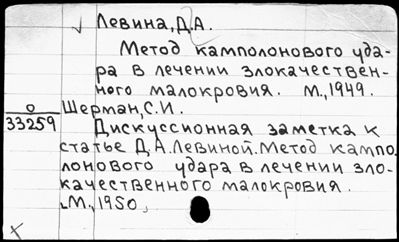 √ Левина, Д.А.
Метод камполонового уда-
ра в лечении злокачествен-
ного малокровия. М., 1949.
о Шерман, С.И.
33259 Дискуссионная заметка к
статье Д.А.Левиной. Метод кампо-
лонового удара в лечении зло-
качественного малокровия.
М., 1950,